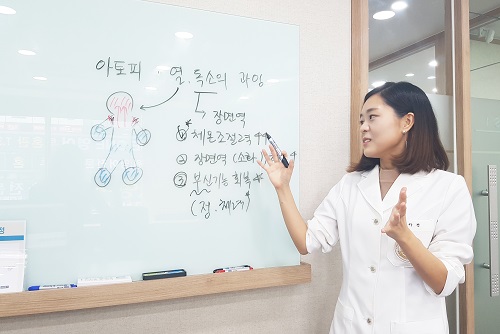 아토피 · 열, 독소의 과잉
장면역
① 체온조절력
② 장면역 (소화
③ 부신기능 회복
(정.체력)